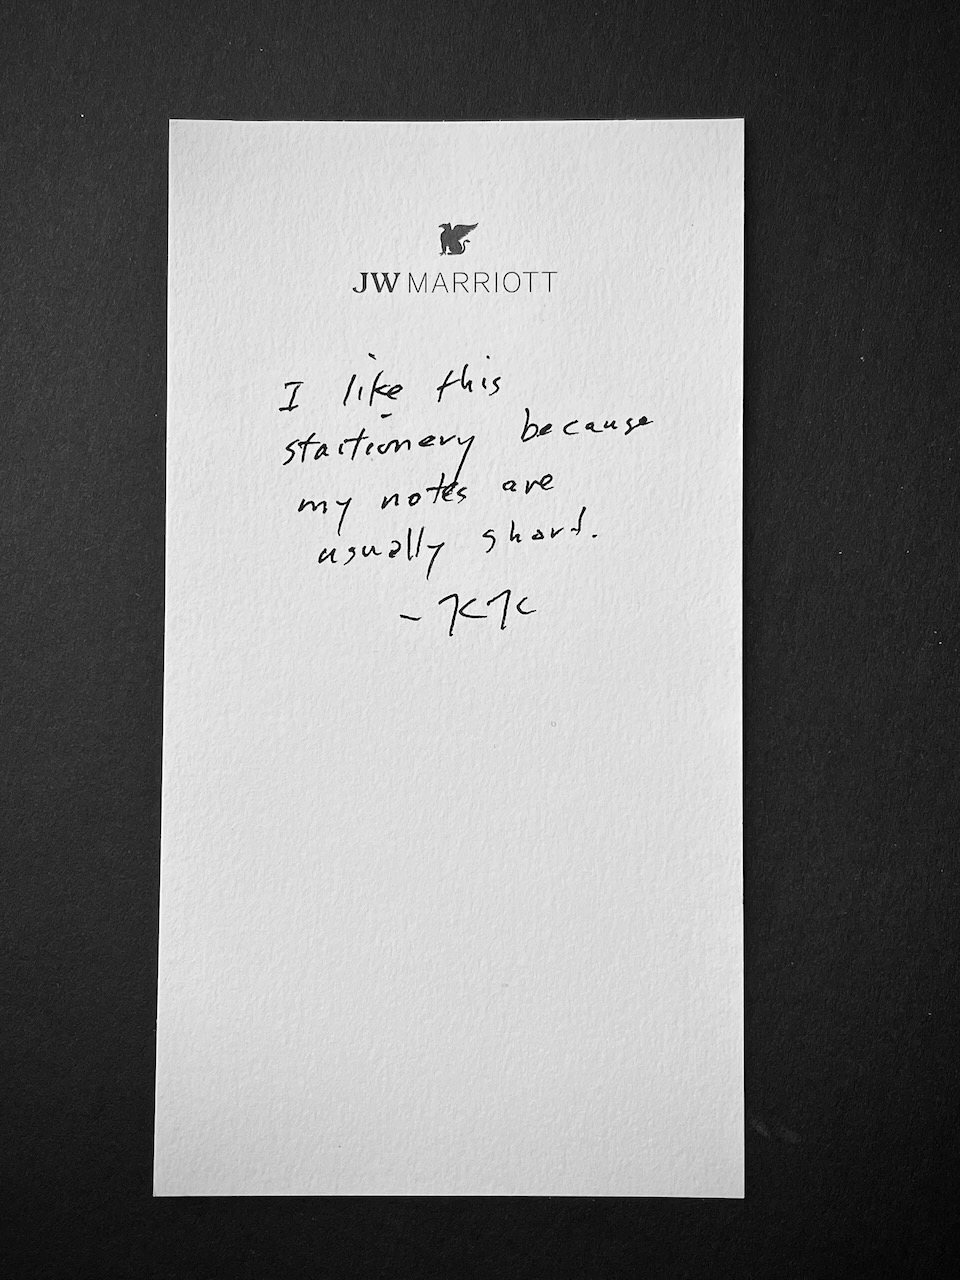 JW MARRIOTT
I like this
stationery because
my notes are
usually short.
- KK